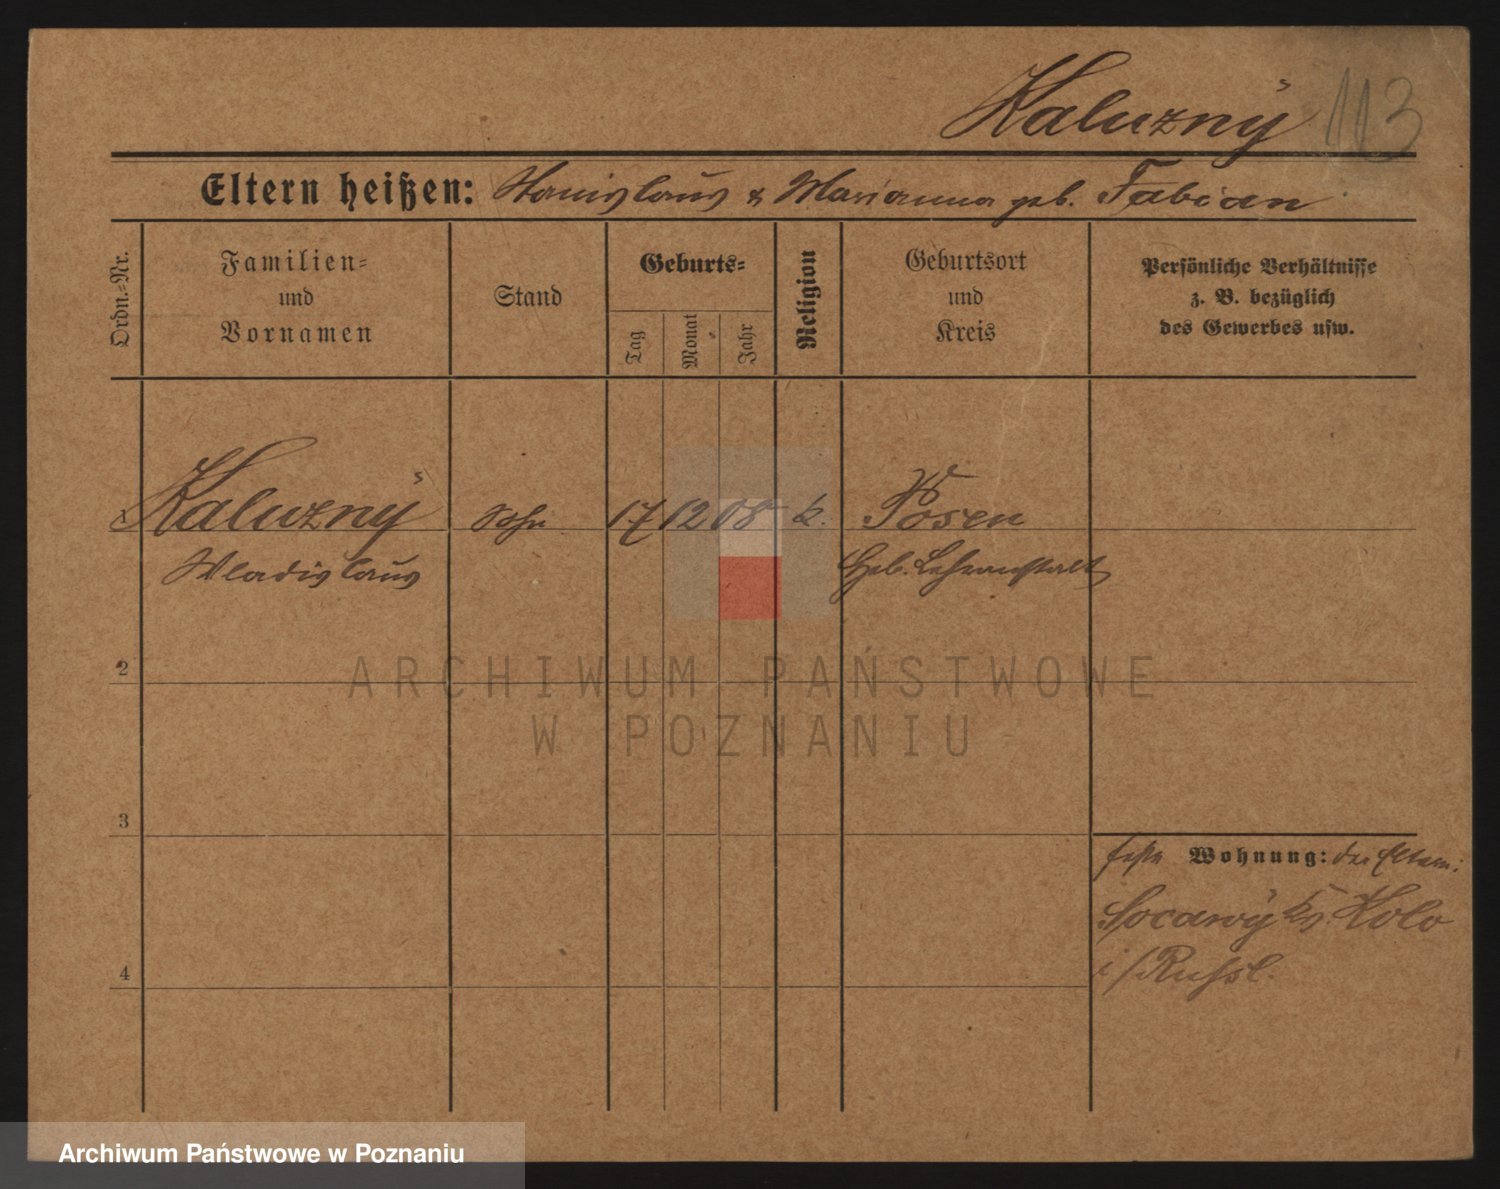 Kaluzny 113
Eltern heißen: Stanislaus & Marianna geb. Fabian
Ordn.-Nr.
Familien-
und
Vornamen
Stand
Geburts-
Tag
Monat
Jahr
Religion
Geburtsort
und
Kreis
Persönliche Verhältnisse
z. B. bezüglich
des Gewerbes usw.
1 Kaluzny Sohn 17 12 08 k. Posen
Wladislaus Heb. Lehranstalt
2
3
feste Wohnung: der Eltern:
Socawy Kr. Kolo
4
i/Russl.
ARCHIWUM PAŃSTWOWE
W POZNANIU
Archiwum Państwowe w Poznaniu